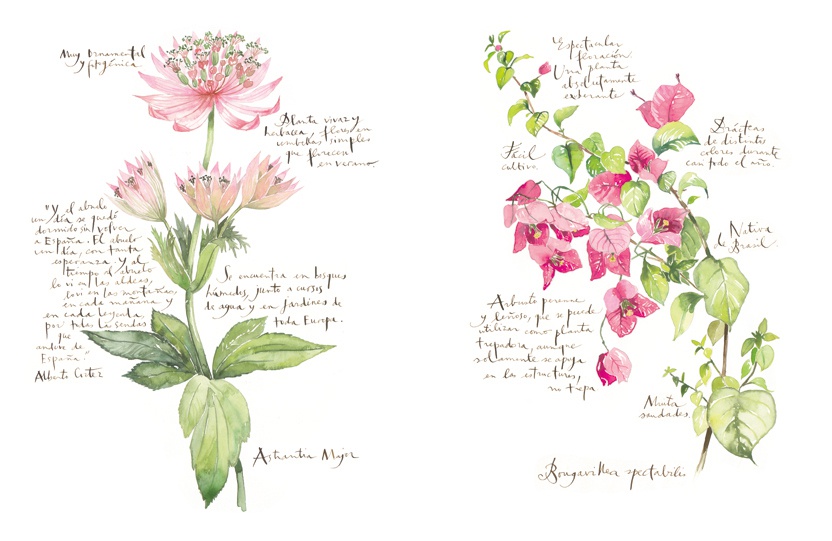 Muy ornamental
y fotogénica
Planta vivaz y
herbácea, flores en
umbelas simples
que florecen
en verano
"Y el abuelo
un día se quedó
dormido sin volver
a España. El abuelo
un día, con tanta
esperanza y al
tiempo al abuelo
lo vi en las aldeas,
lo vi en las montañas
en cada mañana y
en cada leyenda
por todas las sendas
que
anduve de
España."
Alberto Cortez
Se encuentra en bosques
húmedos, junto a cursos
de agua y en jardines de
toda Europa.
Astrantia Major
Espectacular
floración.
Una planta
absolutamente
exuberante
Fácil
cultivo.
Brácteas
de distintos
colores durante
casi todo el año.
Nativa
de Brasil.
Arbusto perenne
y leñoso, que se puede
utilizar como planta
trepadora, aunque
solamente se apoya
en las estructuras,
no trepa
saudades.
Bougavillea spectabilis